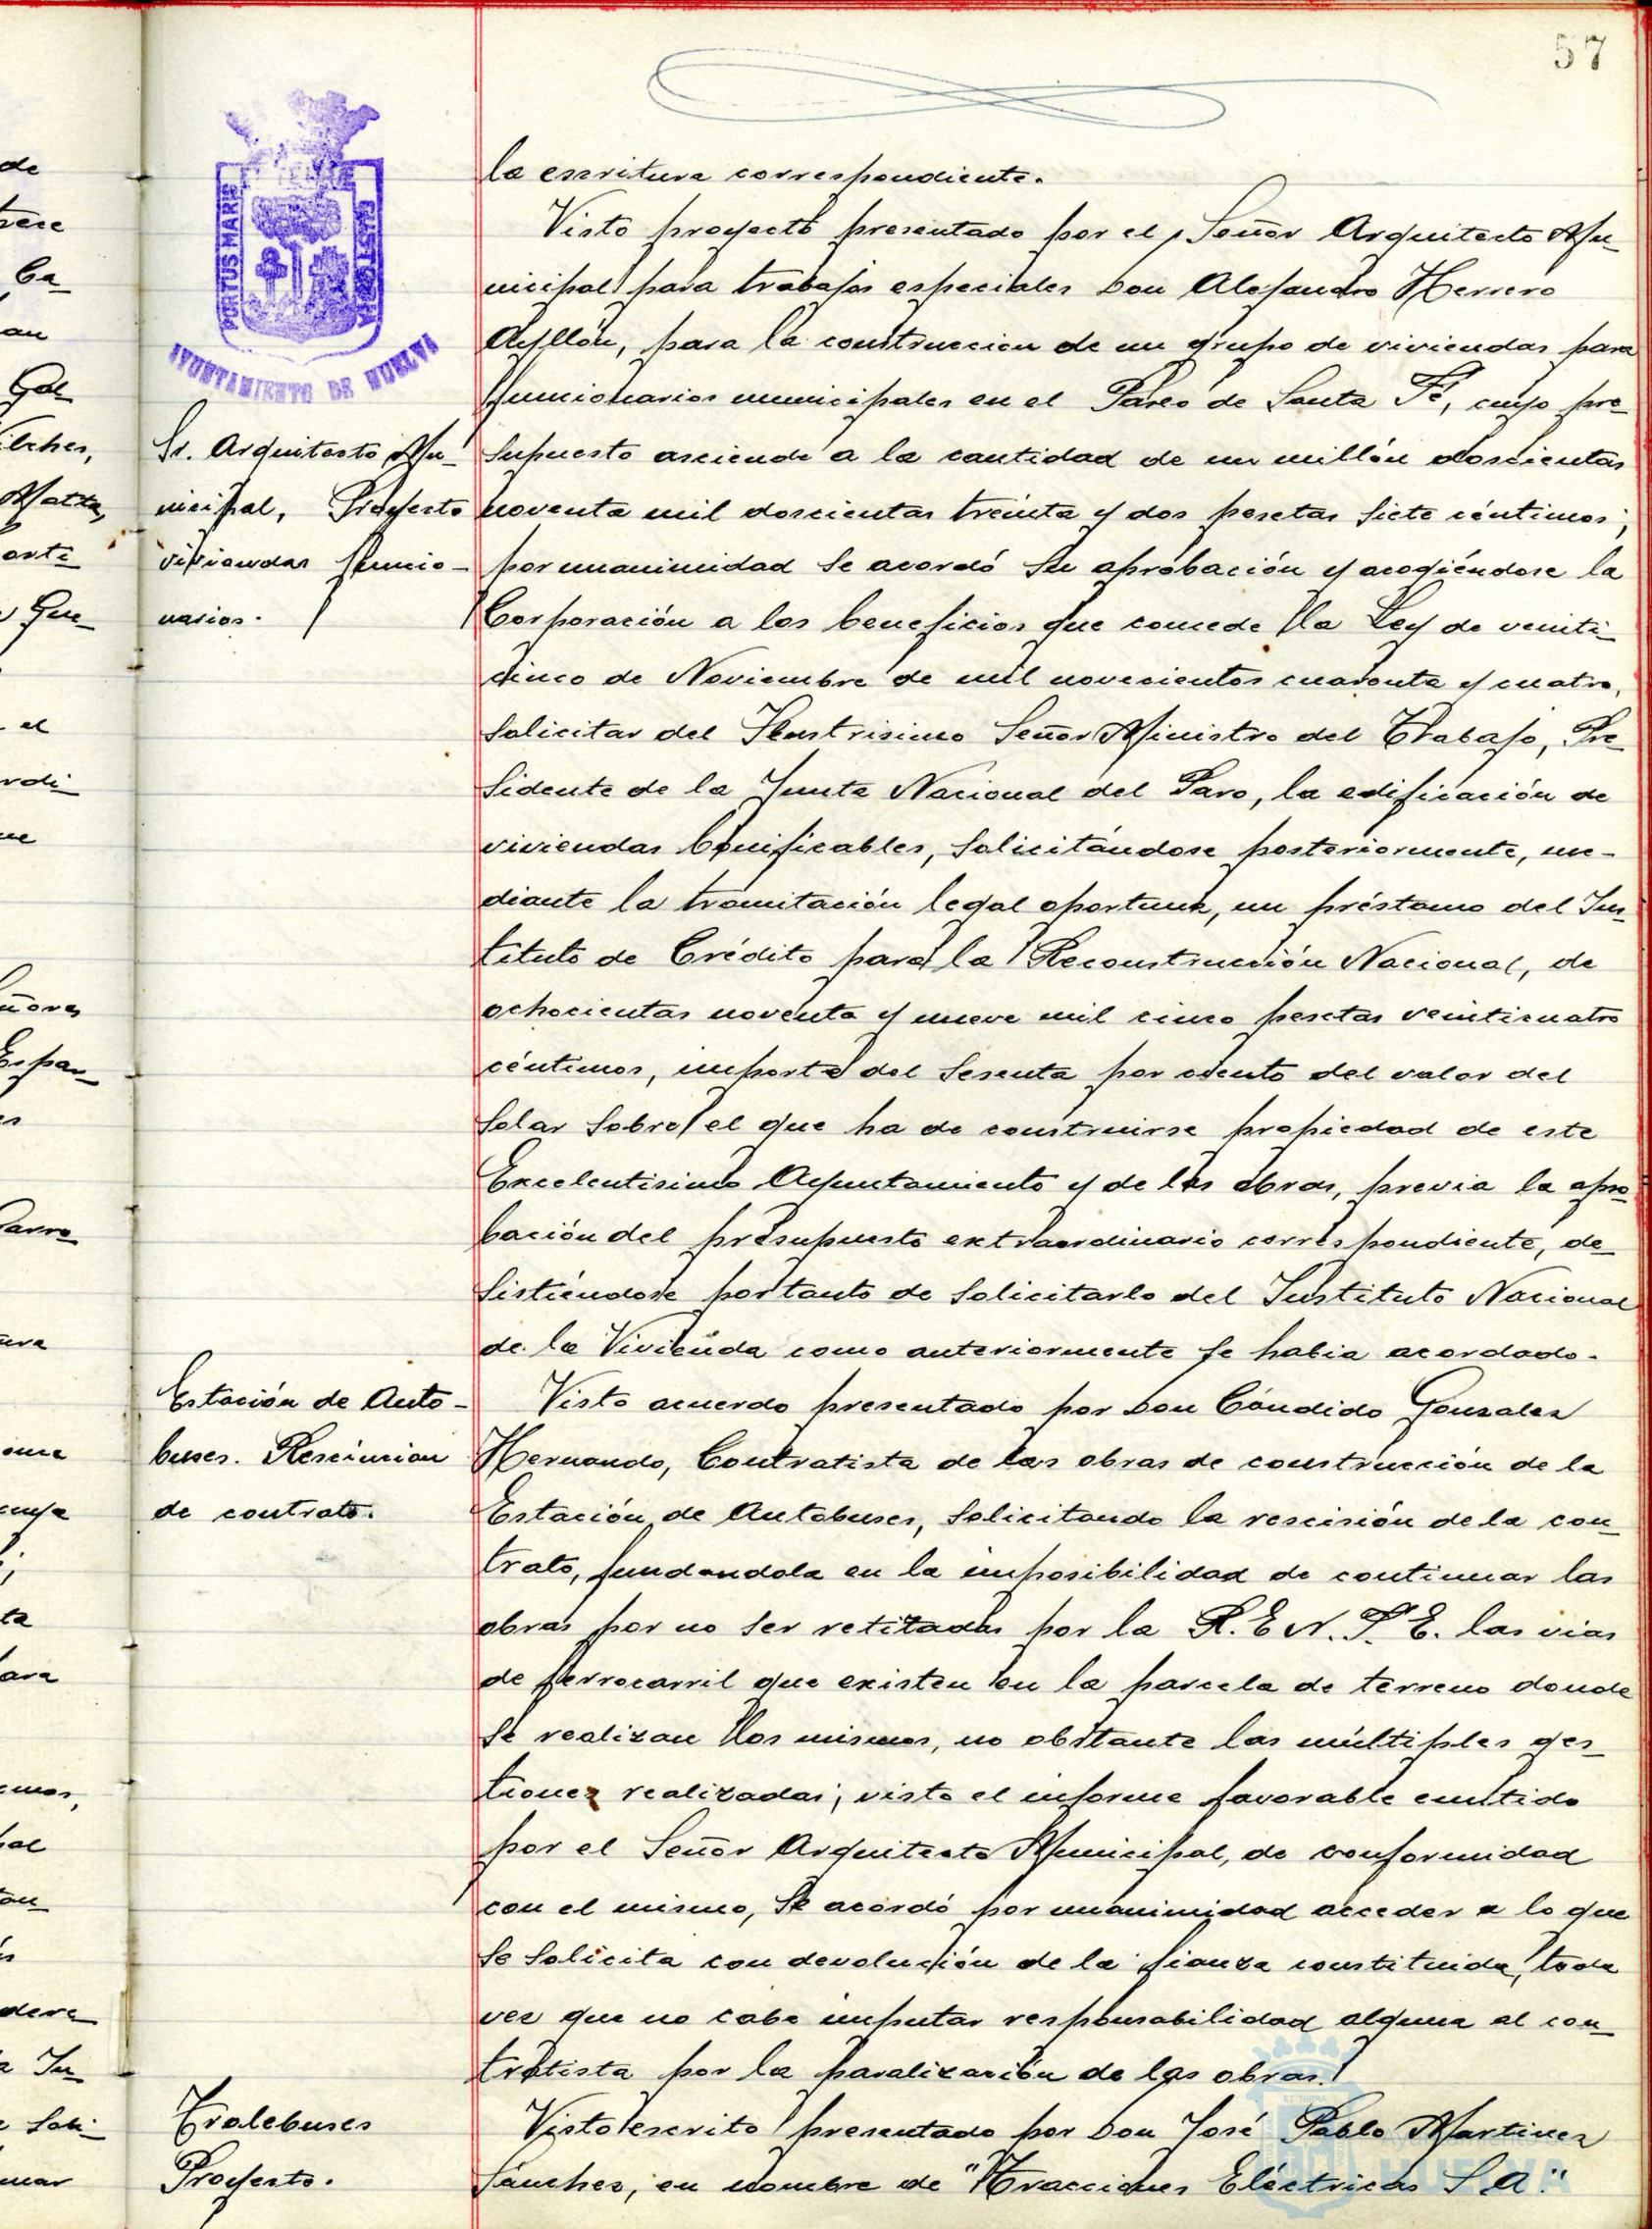 57
la escritura correspondiente.
Visto proyecto presentado por el Señor Arquitecto Mu-
nicipal para trabajos especiales Don Alejandro Herrero
Ayllón, para la construccion de un grupo de viviendas para
funcionarios municipales en el Paseo de Santa Fé, cuyo pre-
supuesto asciende a la cantidad de un millón doscientas
noventa mil doscientas treinta y dos pesetas siete céntimos;
por unanimidad se acordó su aprobación y acogiéndose la
Corporación a los beneficios que concede la Ley de veinti-
cinco de Noviembre de mil novecientos cuarenta y cuatro,
solicitar del Ilustrisimo Señor Ministro del Trabajo, Pre-
sidente de la Junta Nacional del Paro, la edificación de
viviendas bonificables, solicitándose posteriormente, me-
diante la tramitación legal oportuna, un préstamo del Ins-
tituto de Crédito para la Reconstrucción Nacional, de
ochocientas noventa y nueve mil cinco pesetas veinticuatro
céntimos, importe del sesenta por ciento del valor del
solar sobre el que ha de construirse propiedad de este
Excelentisimo Ayuntamiento y de las obras, previa la apro-
bación del presupuesto extraordinario correspondiente, de-
sistiéndose portanto de solicitarlo del Instituto Nacional
de la Vivienda como anteriormente se habia acordado.
Visto acuerdo presentado por Don Cándido Gonzalez
Hernando, Contratista de las obras de construcción de la
Estación de Autobuses, solicitando la rescisión de la con-
trato, fundandola en la imposibilidad de continuar las
obras por no ser retitadas por la R.E.N.F.E. las vias
de ferrocarril que existen en la parcela de terreno donde
se realizan los mismos, no obstante las múltiples ges-
tiones realizadas; visto el informe favorable emitido
por el Señor Arquitecto Municipal, de conformidad
con el mismo, se acordó por unanimidad acceder a lo que
se solicita con devolución de la fianza constituida, toda
vez que no cabe imputar responsabilidad alguna al con-
tratista por la paralización de las obras.
Visto escrito presentado por Don José Pablo Martinez
Sánchez, en nombre de "Tracciones Eléctricas S.A."
PORTUS MARIS
AYUNTAMIENTO DE HUELVA
Sr. Arquitecto Mu-
nicipal, Proyecto
viviendas funcio-
narios.
Estación de Auto-
buses. Rescincion
de contrato.
Trolebuses
Proyecto.
de
an
Gal
ilches,
Matta,
el
rdi-
ñores
Espar-
HUELVA